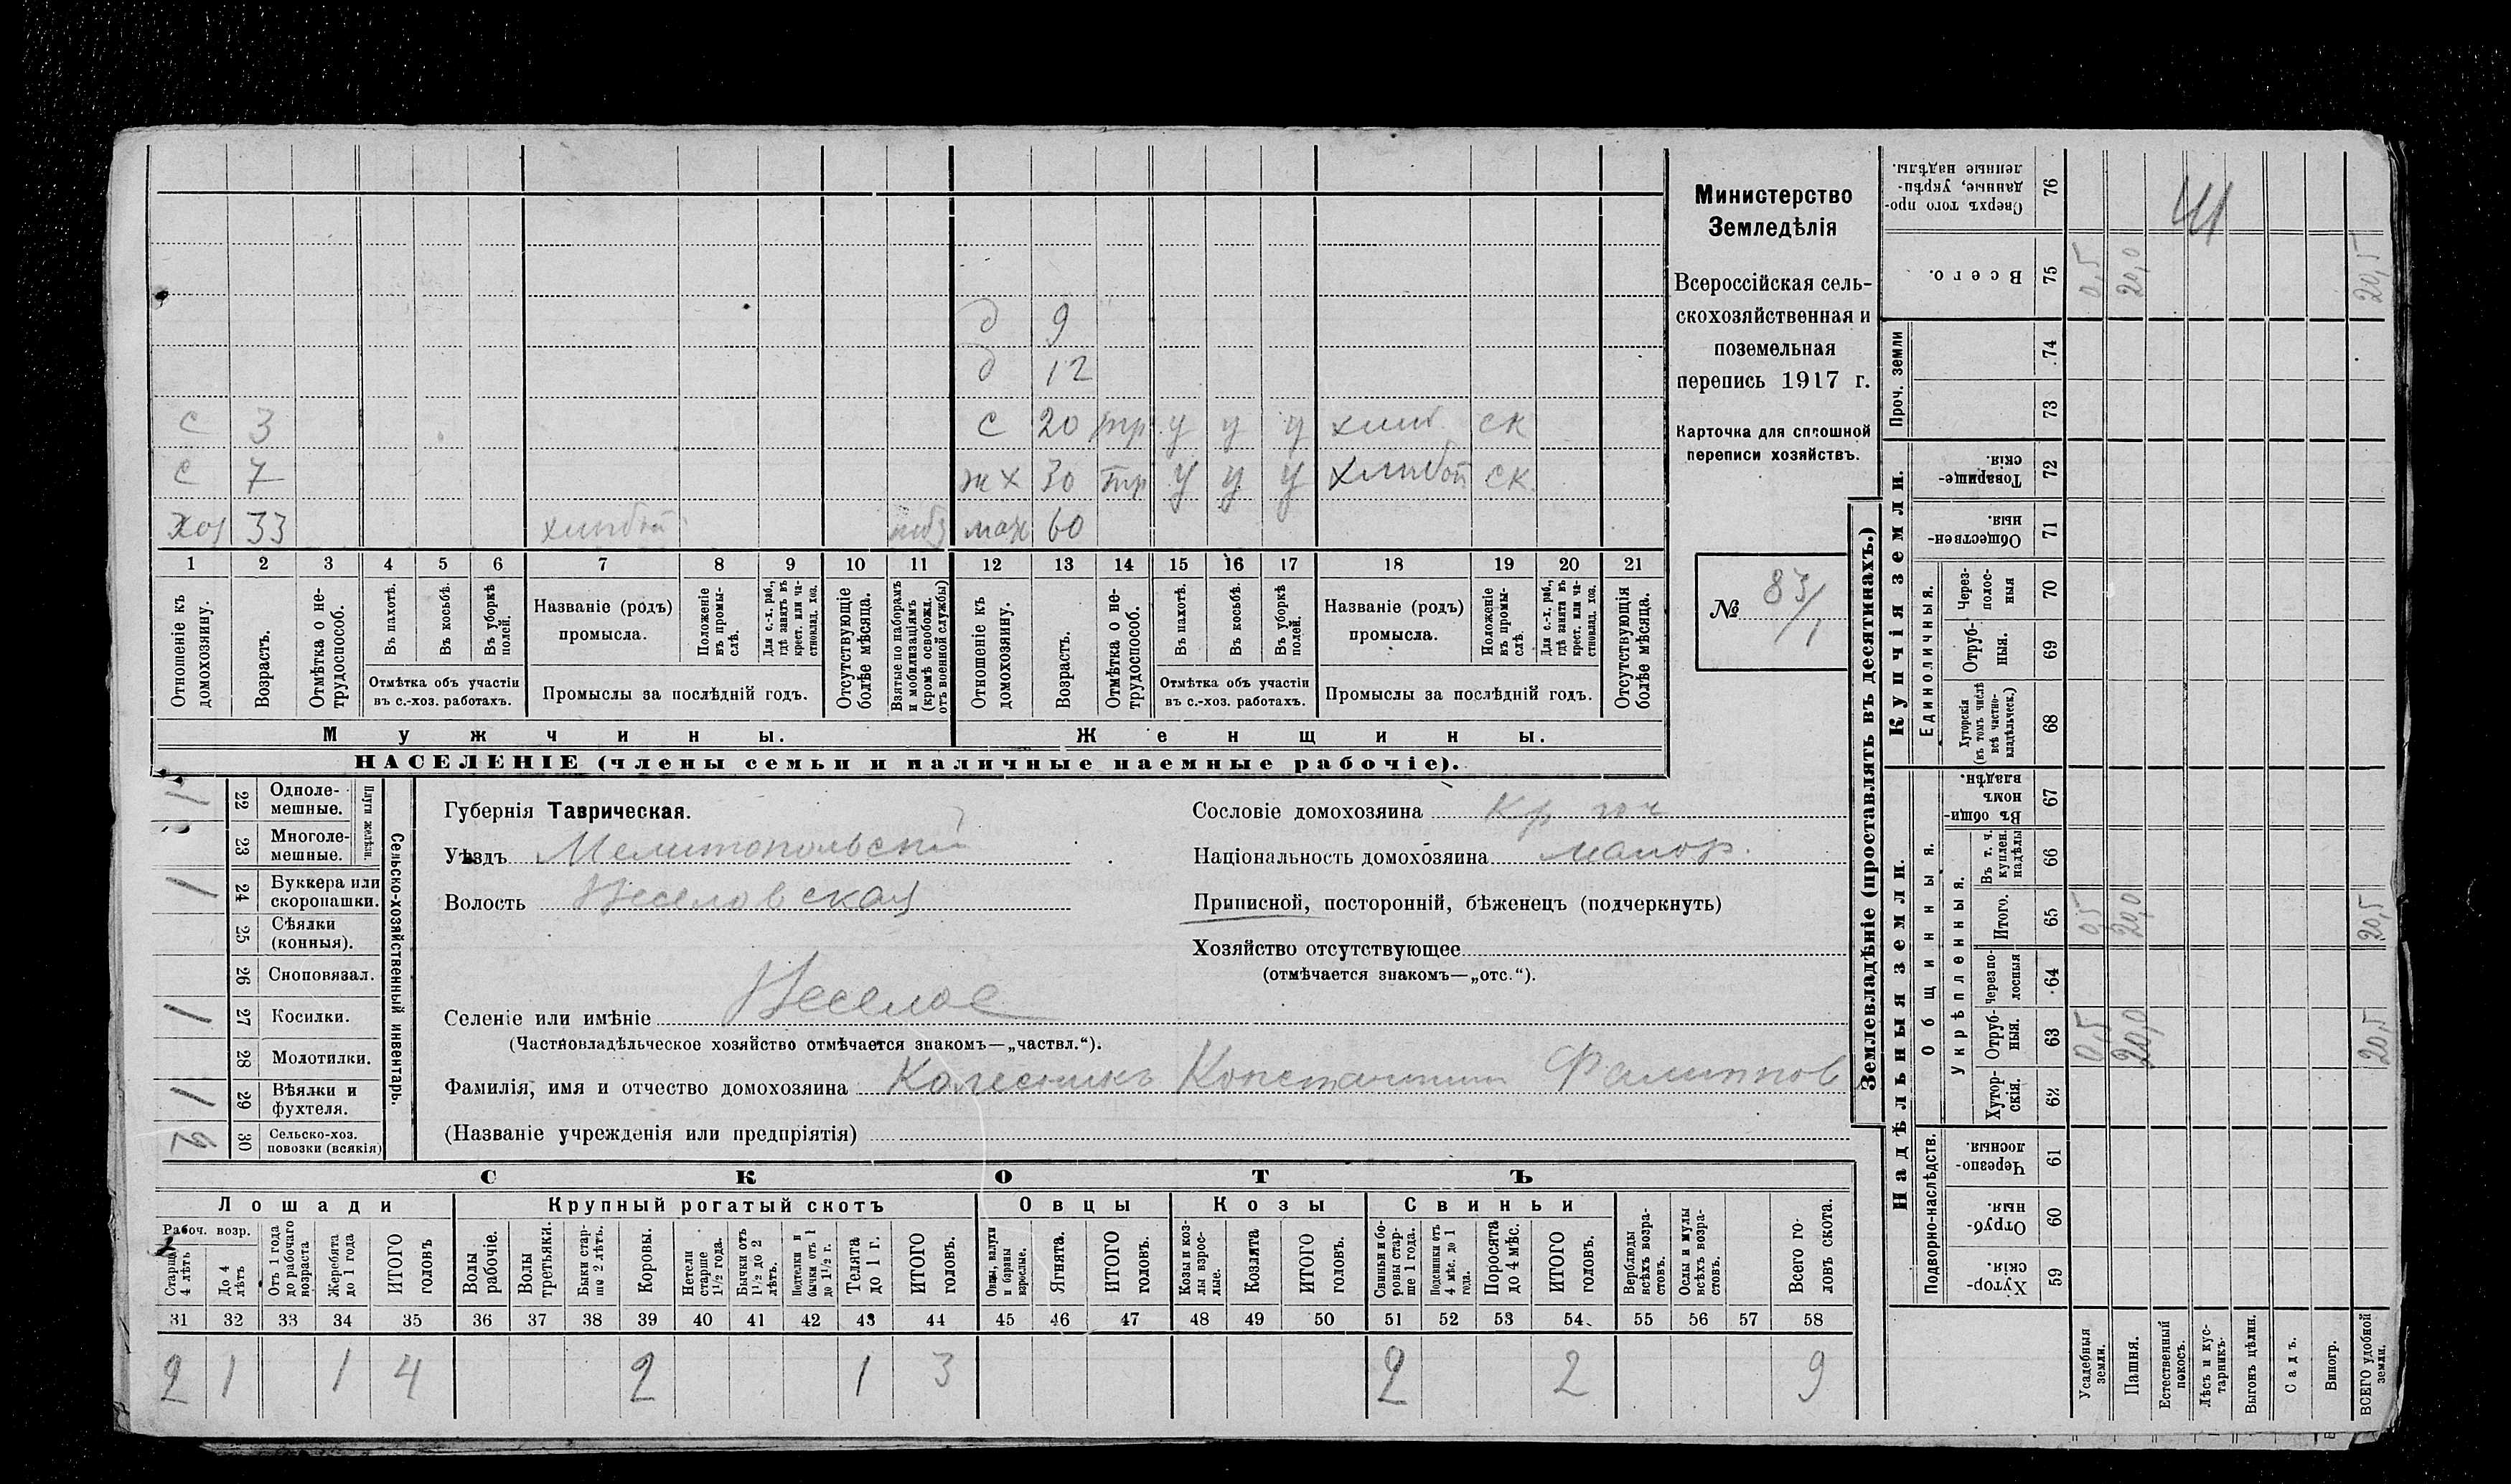 д 9
д 12
с 3 с 20 тр у у у хлѣб ск
с 7 ж х 30 тр у у у хлѣбоп ск
хоз 33 хлѣбоп моб мать 60
1 2 3 4 5 6 7 8 9 10 11 12 13 14 15 16 17 18 19 20 21
Отношеніе къ домохозяину.
Возрастъ.
Отмѣтка о не-трудоспособ.
Въ пахотѣ.
Въ косьбѣ.
Въ уборкѣ полей.
Отмѣтка объ участіи въ с.-хоз. работахъ.
Названіе (родъ) промысла.
Положеніе въ промы-слѣ.
Для с.-х. раб., гдѣ занятъ въ крест. или ча-стновлад. хоз.
Промыслы за послѣдній годъ.
Отсутствующіе болѣе мѣсяца.
Взятые по наборамъ и мобилизаціямъ (кромѣ освобожд. отъ военной службы)
Отношеніе къ домохозяину.
Возрастъ.
Отмѣтка о не-трудоспособ.
Въ пахотѣ.
Въ косьбѣ.
Въ уборкѣ полей.
Отмѣтка объ участіи въ с.-хоз. работахъ.
Названіе (родъ) промысла.
Положеніе въ промы-слѣ.
Для с.-х. раб., гдѣ занята въ крест. или ча-стновлад. хоз.
Промыслы за послѣдній годъ.
Отсутствующія болѣе мѣсяца.
Мужчины. Женщины.
НАСЕЛЕНІЕ (члены семьи и наличные наемные рабочіе).
Министерство
Земледѣлія
Всероссійская сель-
скохозяйственная и
поземельная
перепись 1917 г.
Карточка для сплошной
переписи хозяйствъ.
№ 83/1
Сельско-хозяйственный инвентарь.
Плуги желѣзн.
1 22 Однолe-мешные.
23 Многоле-мешные.
1 24 Буккера или скоропашки.
25 Сѣялки (конныя).
26 Сноповязал.
1 27 Косилки.
28 Молотилки.
1 29 Вѣялки и фухтеля.
2 30 Сельско-хоз. повозки (всякія)
Губернія Таврическая.
Уѣздъ Мелитопольскій
Волость Веселовская
Селеніе или имѣніе Веселое
(Частновладѣльческое хозяйство отмѣчается знакомъ—„частвл.“).
Фамилія, имя и отчество домохозяина Колесникъ Константинъ Филиппов
(Названіе учрежденія или предпріятія)
Сословіе домохозяина Кр
Національность домохозяина малор.
Приписной, посторонній, бѣженецъ (подчеркнуть)
Хозяйство отсутствующее
(отмѣчается знакомъ—„отс.“).
СКОТЪ
Лошади Крупный рогатый скотъ Овцы Козы Свиньи
Рабоч. возр.
Старше 4 лѣтъ
До 4 лѣтъ
Отъ 1 года до рабочаго возраста
Жеребята до 1 года
ИТОГО головъ
Волы рабочіе.
Волы третьяки.
Быки стар-ше 2 лѣтъ.
Коровы.
Нетели старше 1½ года.
Бычки отъ 1½ до 2 лѣтъ.
Подтелки и бычки отъ 1 до 1½ г.
Телята до 1 г.
ИТОГО головъ.
Овцы, валухи и бараны взрослые.
Ягнята.
ИТОГО головъ.
Козы и коз-лы взрос-лые.
Козлята
ИТОГО головъ.
Свиньи и бо-ровы стар-ше 1 года.
Подсвинки отъ 4 мѣс. до 1 года.
Поросята до 4 мѣс.
ИТОГО головъ.
Верблюды всѣхъ возра-стовъ.
Ослы и мулы всѣхъ возра-стовъ.
Всего го-ловъ скота.
31 32 33 34 35 36 37 38 39 40 41 42 43 44 45 46 47 48 49 50 51 52 53 54 55 56 57 58
2 1 1 4 2 1 3 2 2 9
Землевладѣніе (проставлять въ десятинахъ.)
41
Сверхъ того про-данные, укрѣп-ленные надѣлы. 76
Всего. 75 0,5 20,0 20,5
Проч. земли
74
73
Купчія земли.
Товарище-скія. 72
Обществен-ныя. 71
Единоличныя.
Через-полос-ныя 70
Отруб-ныя. 69
Хуторскія (въ томъ числѣ всѣ частно-владѣльческ.) 68
Надѣльныя земли.
Общинныя.
Въ общи-номъ владѣн. 67
Укрѣпленныя.
Въ т. ч. куплен. надѣлы 66
Итого. 65 0,5 20,0 20,5
Черезпо-лосныя 64
Отруб-ныя. 63 0,5 20,0 20,5
Хутор-скія. 62
Подворно-наслѣдств.
Черезпо-лосныя. 61
Отруб-ныя. 60
Хутор-скія. 59
Усадебныя земли.
Пашня.
Естественный покосъ.
Лѣсъ и кус-тарникъ.
Выгонъ цѣлин.
Садъ.
Виногр.
ВСЕГО удобной земли.